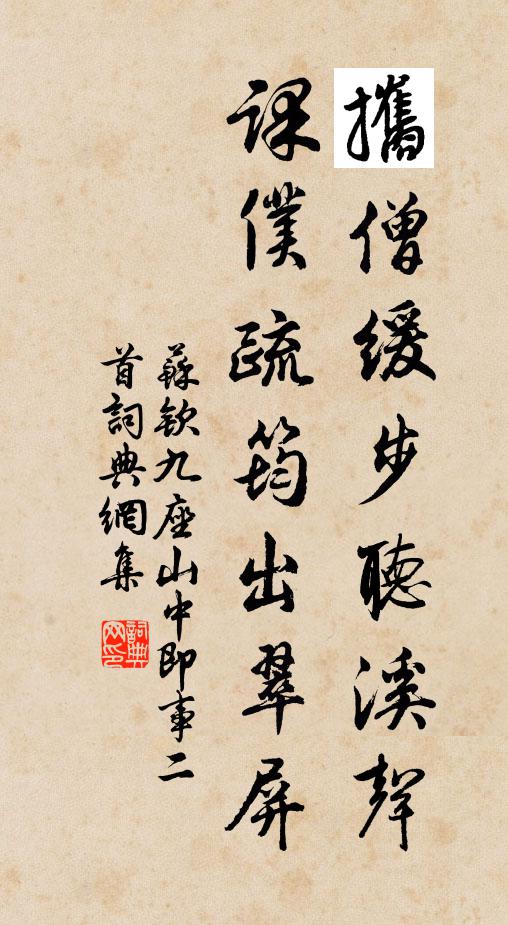 攜僧緩步聽溪聲
課僕疏筠出翠屏
蘇欽九座山中即事二
首詞典網集
詞典
网印